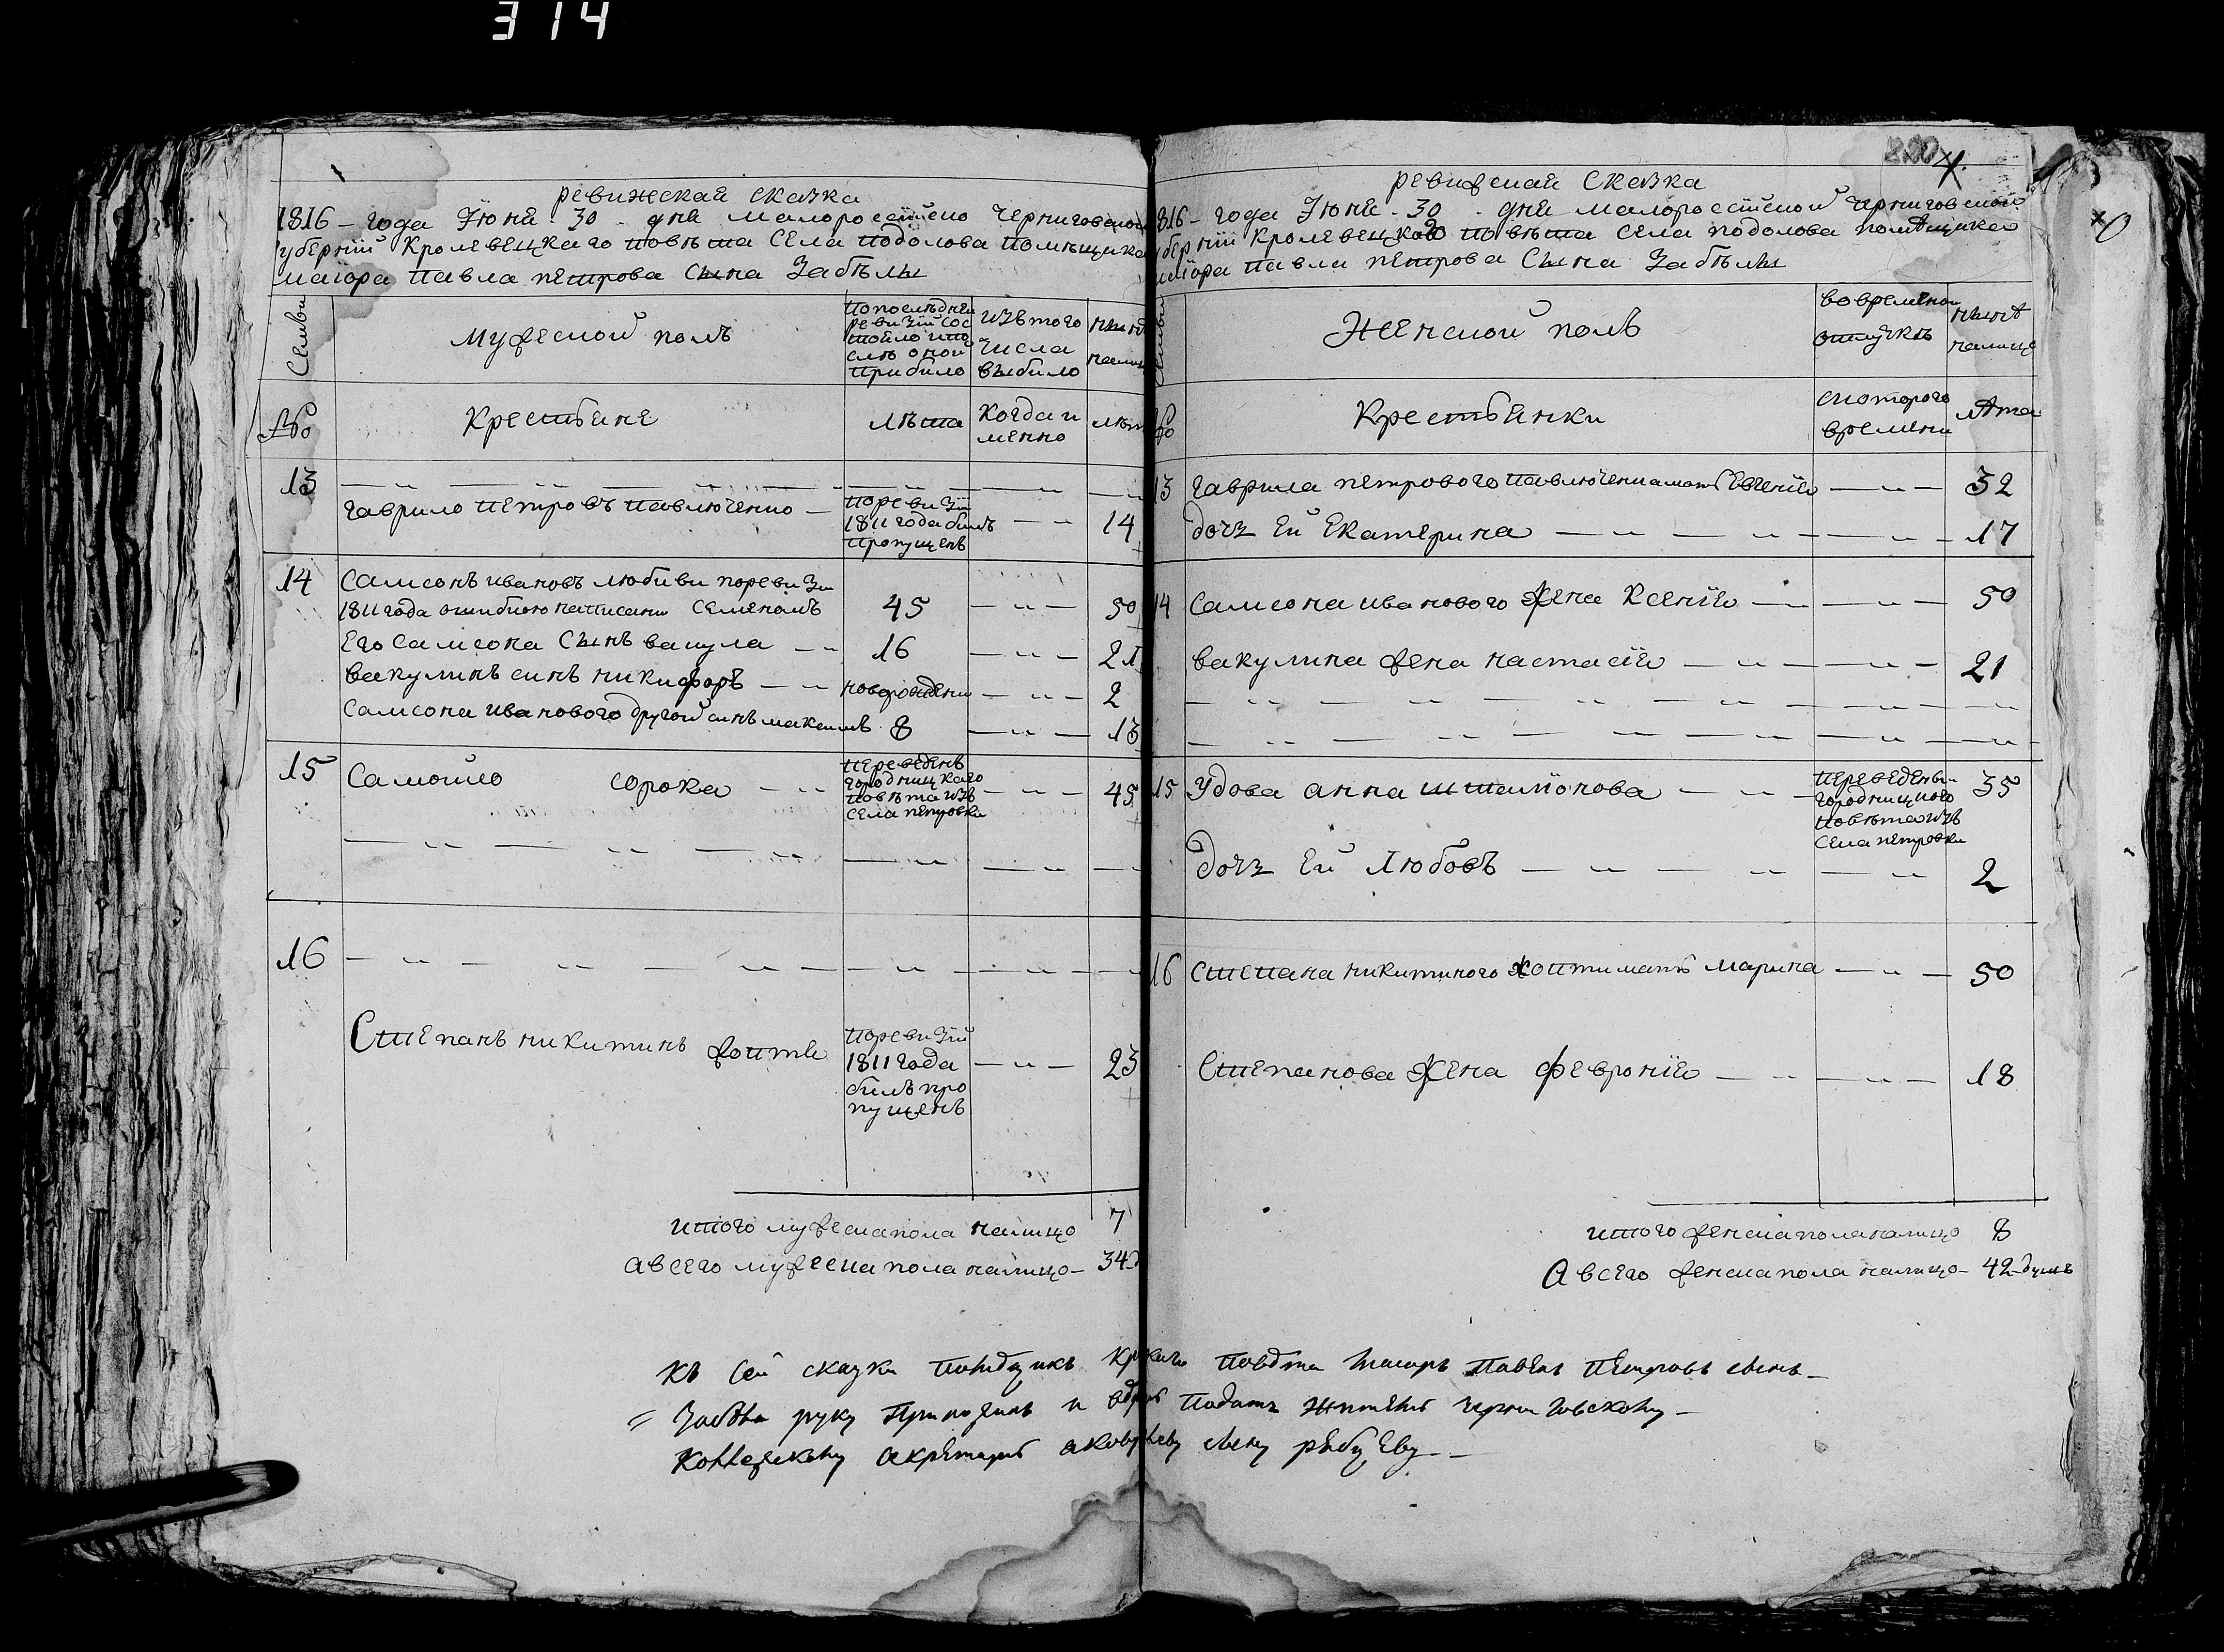 314
ревижская сказка
1816 – года Июня . 30 . дня малороссийско Черниговской
Губернии Кролевецкаго повѣта села подолова помѣщика
маіора павла петрова сына Забѣлы
Семьи
мужеской полъ
По последней
ревизіи сос
тояло и по
слѣ оной
прибило
изъ того
числа
выбило
нынѣ
налицо
№
Крестьяне
лѣта
когда и
менно
лѣт
13
— " — " — " —
гаврило петровъ павлюченко —
поревизіи
1811 года билъ
пропущенъ
— "
14
14
Самсонъ ивановъ любиви поревизіи
1811 года ошибкою написани Семеномъ
45
— " —
50
Его Самсона Сынъ вакула — "
16
— " —
21
вакулинъ синъ никифоръ — "
новорожденни
— " —
2
Самсона иванового другой синъ максимъ
8
— " —
13
15
Самойло сорока — "
переведенъ
городницкаго
повѣта изъ
села петровки
— " —
45
— " — " — "
16
— " — " — " —
Степанъ никитинъ хоптя
поревизіи
1811 года
билъ про
пущенъ
— " —
23
итого мужеска пола налицо 7
а всего мужеска пола налицо – 34 д
ревижская сказка
1816 – года Июня . 30 . дня малороссийской черниговской
губерніи кролевецкого повѣта села подолова помѣщика
маіора павла петрова сына Забѣлы
Женской полъ
во временой
отлучкѣ
нынѣ
налицо
№
Крестьянки
с которого
времени
лѣта
13
гаврила петрового павлюченка мать Евгенія — " —
32
дочь Ей Екатерина — " — " —
17
14
самсона иванового жена Ксенія — " —
50
вакулина жена настасія — " — " —
21
— " — " — " —
— " — " — " —
15
Удова анна — " —
переведены
городницкого
повѣта изъ
села петровки
35
дочь Ей Любовъ — " — "
2
16
Степана никитиного хопти мать марина — " —
50
Степанова жена февронія — " —
18
итого женска пола налицо 8
а всего женска пола налицо – 42 душъ
къ сей сказки помѣщикъ повѣта маіоръ павелъ петровъ сынъ –
Забѣла руку приложилъ и подать черниговскому –
коллежскому секретарю сыну